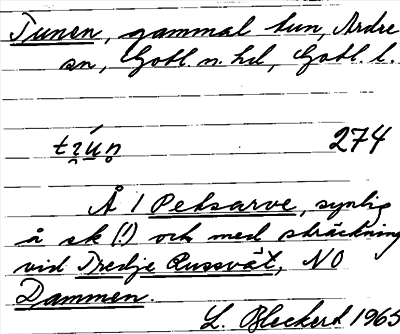 Tunen, gammal tun, Ardre
sn, Gotl. n. hd, Gotl. l.
274
Å 1 Petsarve, synlig
å sk (!) och med sträckning
vid Tredje Russvät, NO
Dammen.
L. Bleckerd 1965